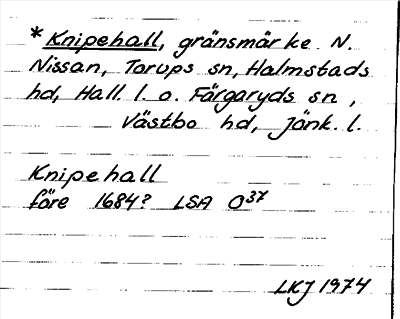 *Knipehall, gränsmärke N.
Nissan, Torups sn, Halmstads
hd, Hall. l. o. Färgaryds sn,
Västbo hd, Jönk. l.
Knipehall
före 1684? LSA O37
LKJ 1974